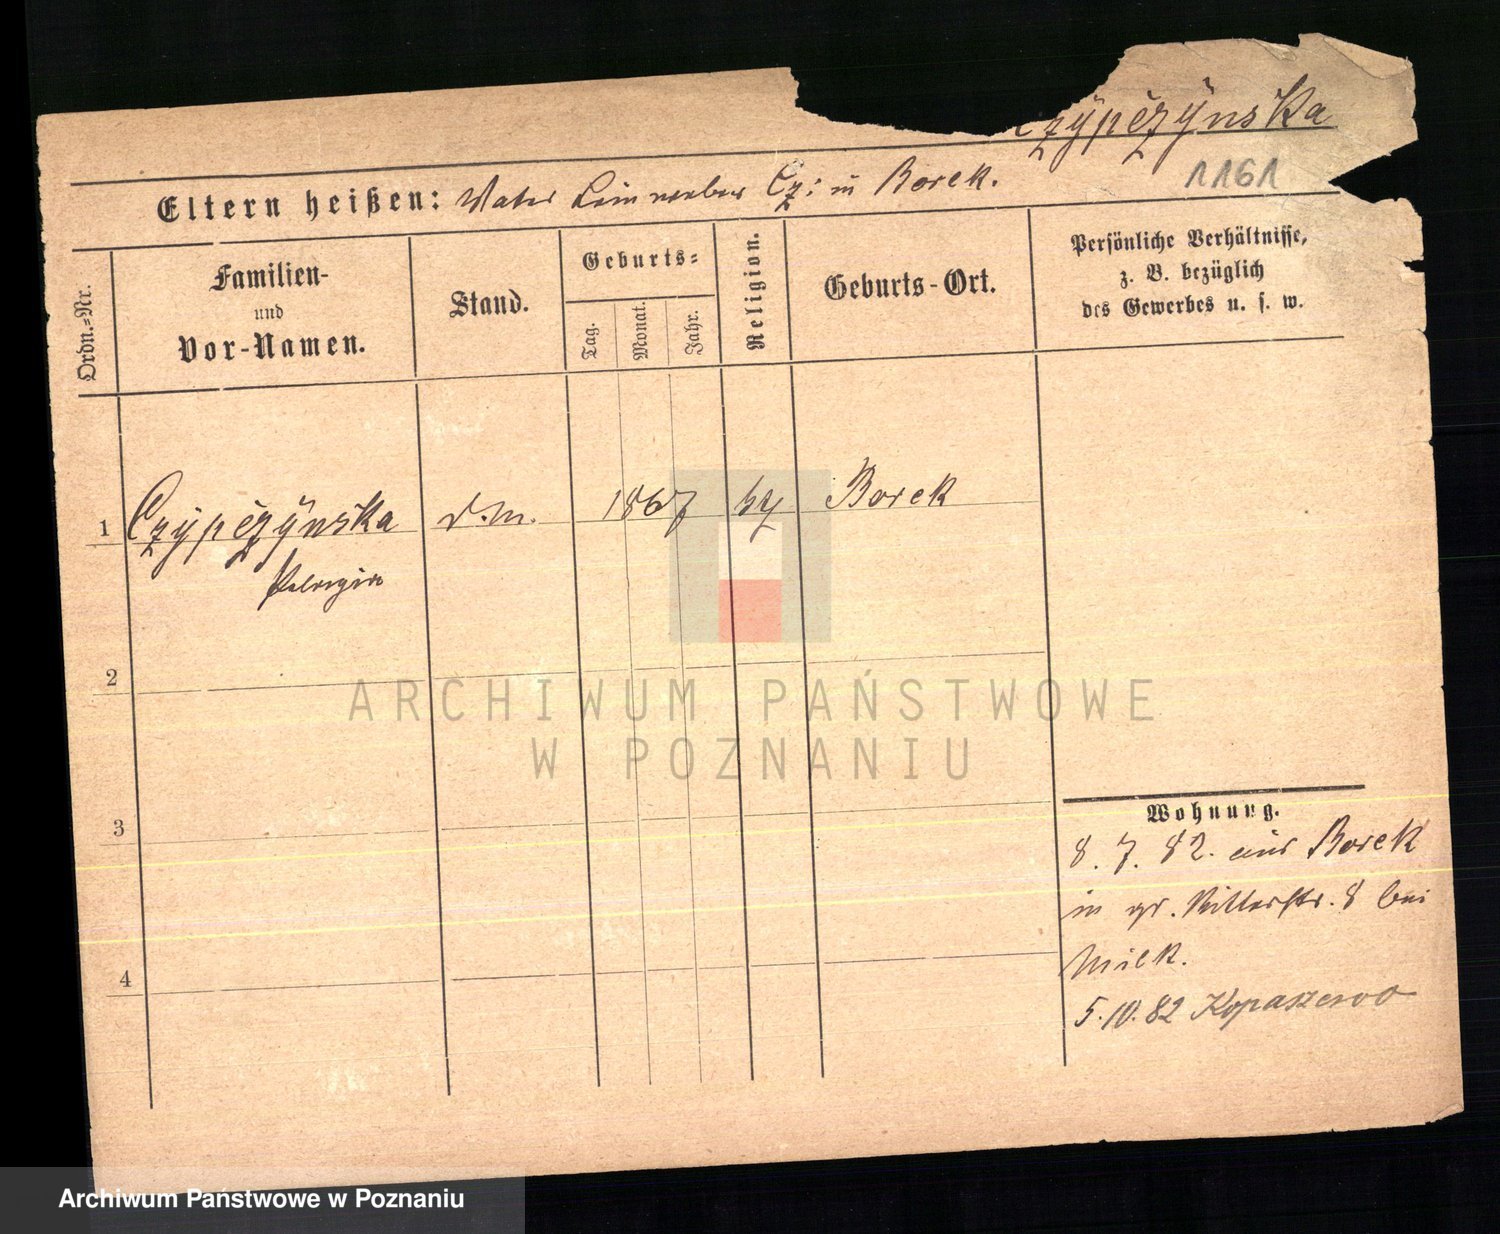 Czÿpczÿnska
1161
Eltern heißen: Vater Leinweber Cz: in Borek.
Ordn.=Nr.
Familien-
und
Vor-Namen.
Stand.
Geburts=
Tag.
Monat.
Jahr.
Religion.
Geburts-Ort.
Persönliche Verhältnisse,
z. B. bezüglich
des Gewerbes u. s. w.
1 Czÿpczÿnska d.m. 1867 Borek
Pelagia
2
3
4
Wohnung.
8. 7. 82. aus Borek
in gr. Ritterstr. 8 bei
Milk.
5.10.82 Kopaszewo
ARCHIWUM PAŃSTWOWE
W POZNANIU
Archiwum Państwowe w Poznaniu